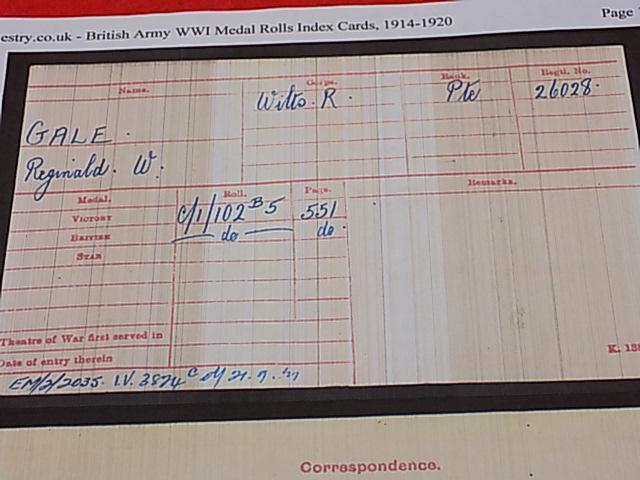 estry.co.uk - British Army WWI Medal Rolls Index Cards, 1914-1920 Page
Name. Corps. Rank. Regtl. No.
Wilts. R. Pte 26028.
GALE.
Reginald. W.
Medal. Roll. Page. Remarks.
Victory C/1/102 B5 551
British do do.
Star
Theatre of War first served in
Date of entry therein K. 138
EM/2/2035. I.V. 3874 C of 21.9.
Correspondence.